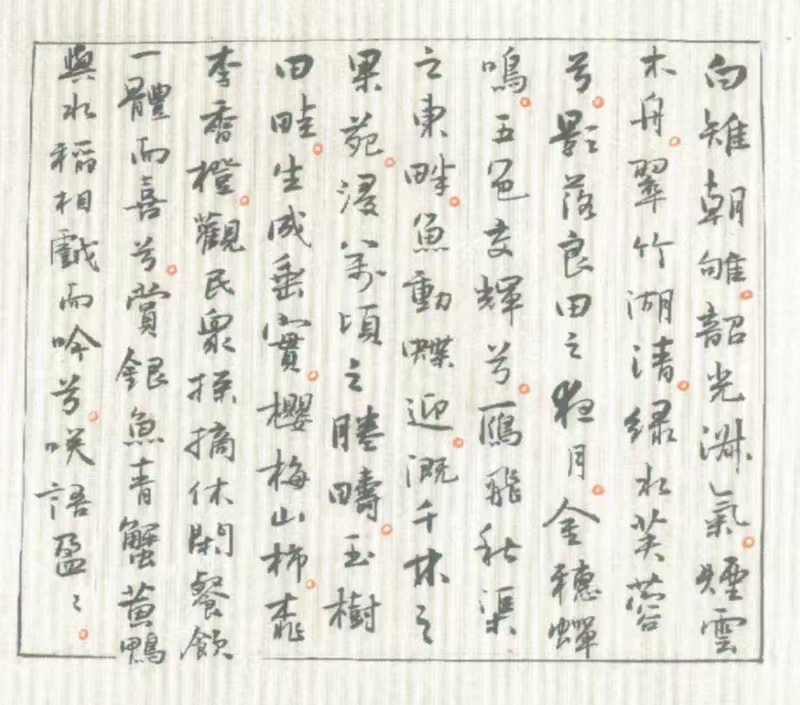 白雉朝雊。韶光淑氣。煙雲
木舟。翠竹湖清。綠水芙蓉
兮。影落良田之夜月。金穗蟬
鳴。五色交輝兮。鴈飛秋渠
之東畔。魚動蝶迎。溉千林之
果苑。浸萬頃之塍疇。玉樹
田畦。生成垂實。櫻梅山柿。桃
李香橙。觀民眾採摘休閑餐飲
一體而喜兮。賞銀魚青蟹黃鴨
與水稻相戲而吟兮。咲語盈〻。